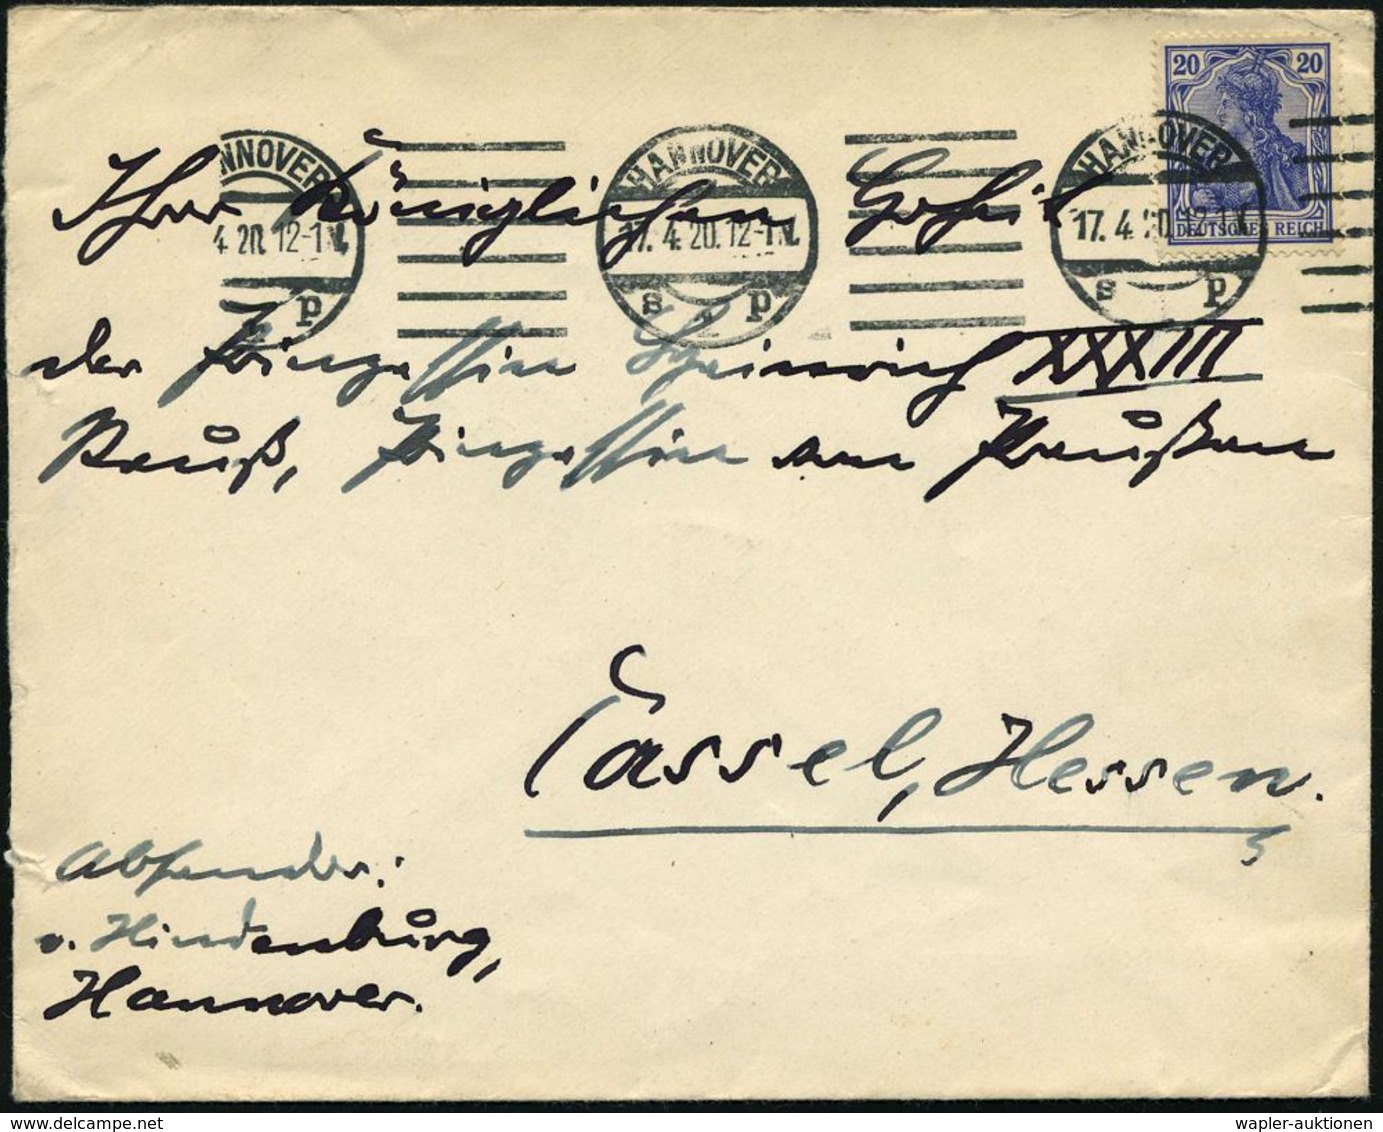 20 20
DEUTSCHES REICH
NNOVER
4. 20. 12-1 N.
p
HANNOVER
17. 4. 20. 12-1 N.
s 2 p
HANNOVER
17. 4. 20. 12-1 N.
s p
Ihrer Königlichen Hoheit
der Prinzessin Heinrich XXXIII
Reuß, Prinzessin von Preußen
Cassel, Hessen.
Absender:
v. Hindenburg,
Hannover.
wapler-auktionen